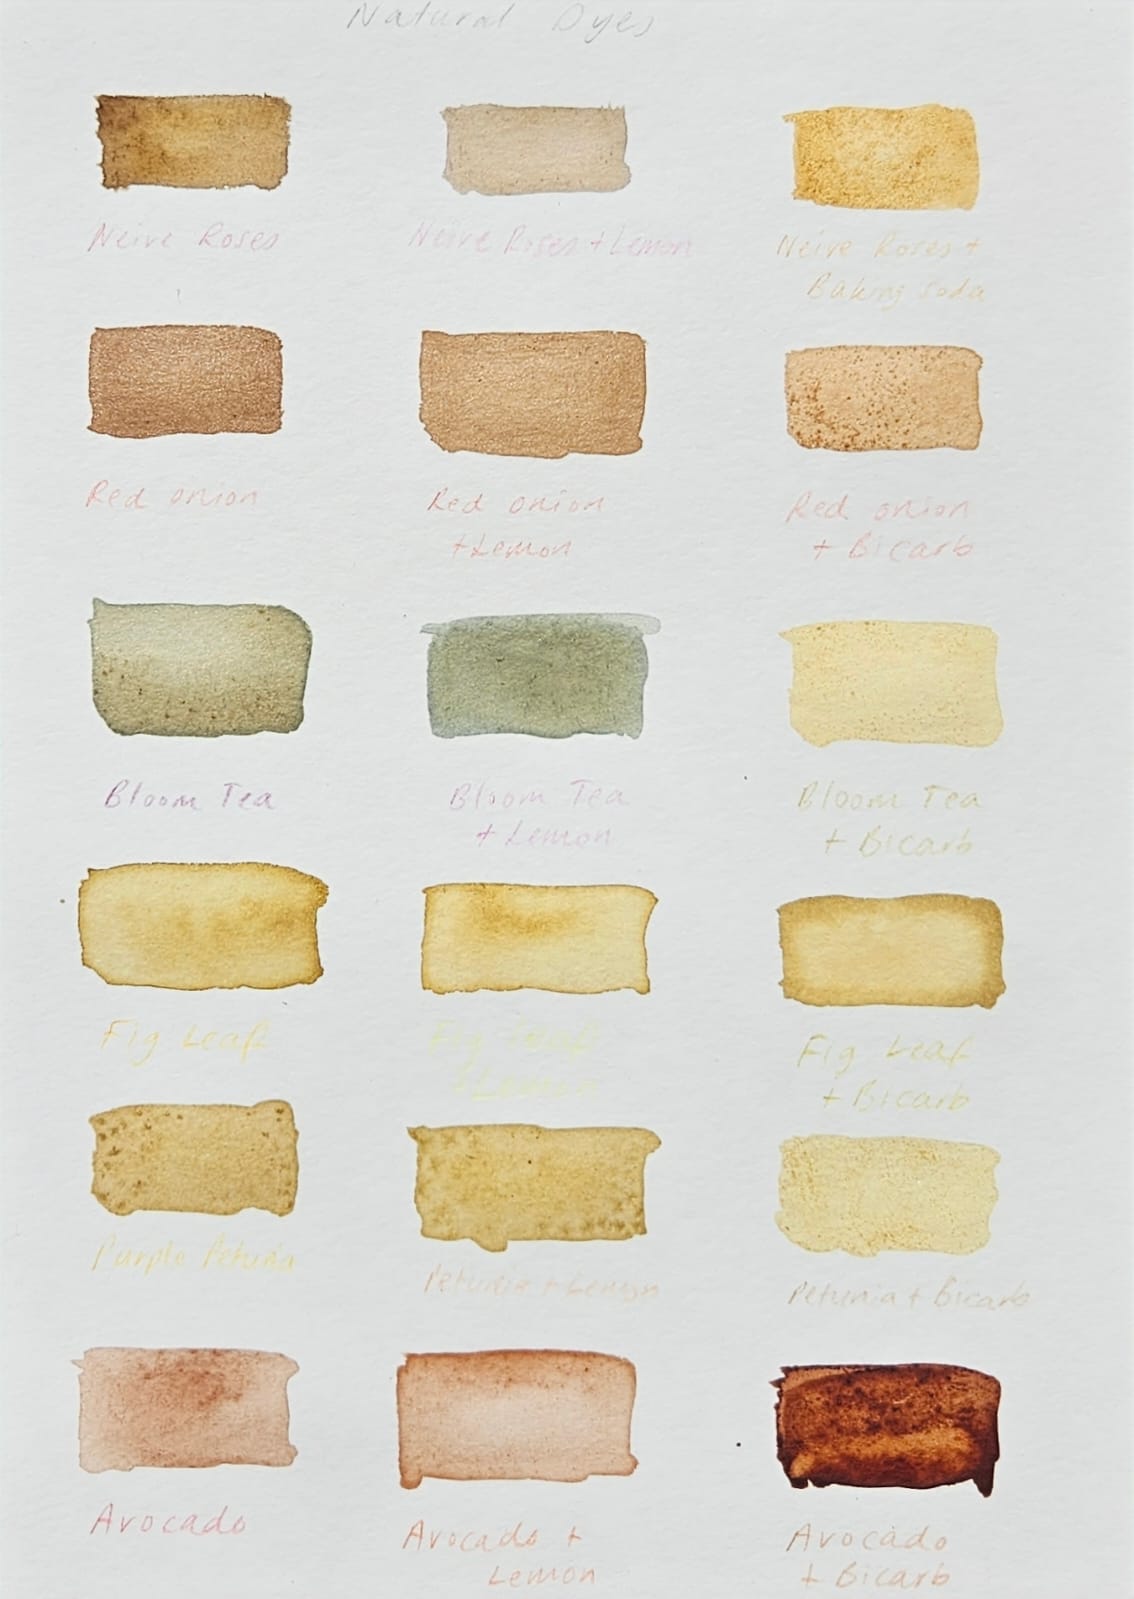 Natural Dyes
Neive Roses
Neive Roses + Lemon
Neive Roses +
Baking soda
Red onion
Red onion
+ Lemon
Red onion
+ Bicarb
Bloom Tea
Bloom Tea
+ Lemon
Bloom Tea
+ Bicarb
Fig Leaf
Fig Leaf
+ Lemon
Fig Leaf
+ Bicarb
Purple Petunia
Petunia + Lemon
Petunia + Bicarb
Avocado
Avocado +
Lemon
Avocado
+ Bicarb